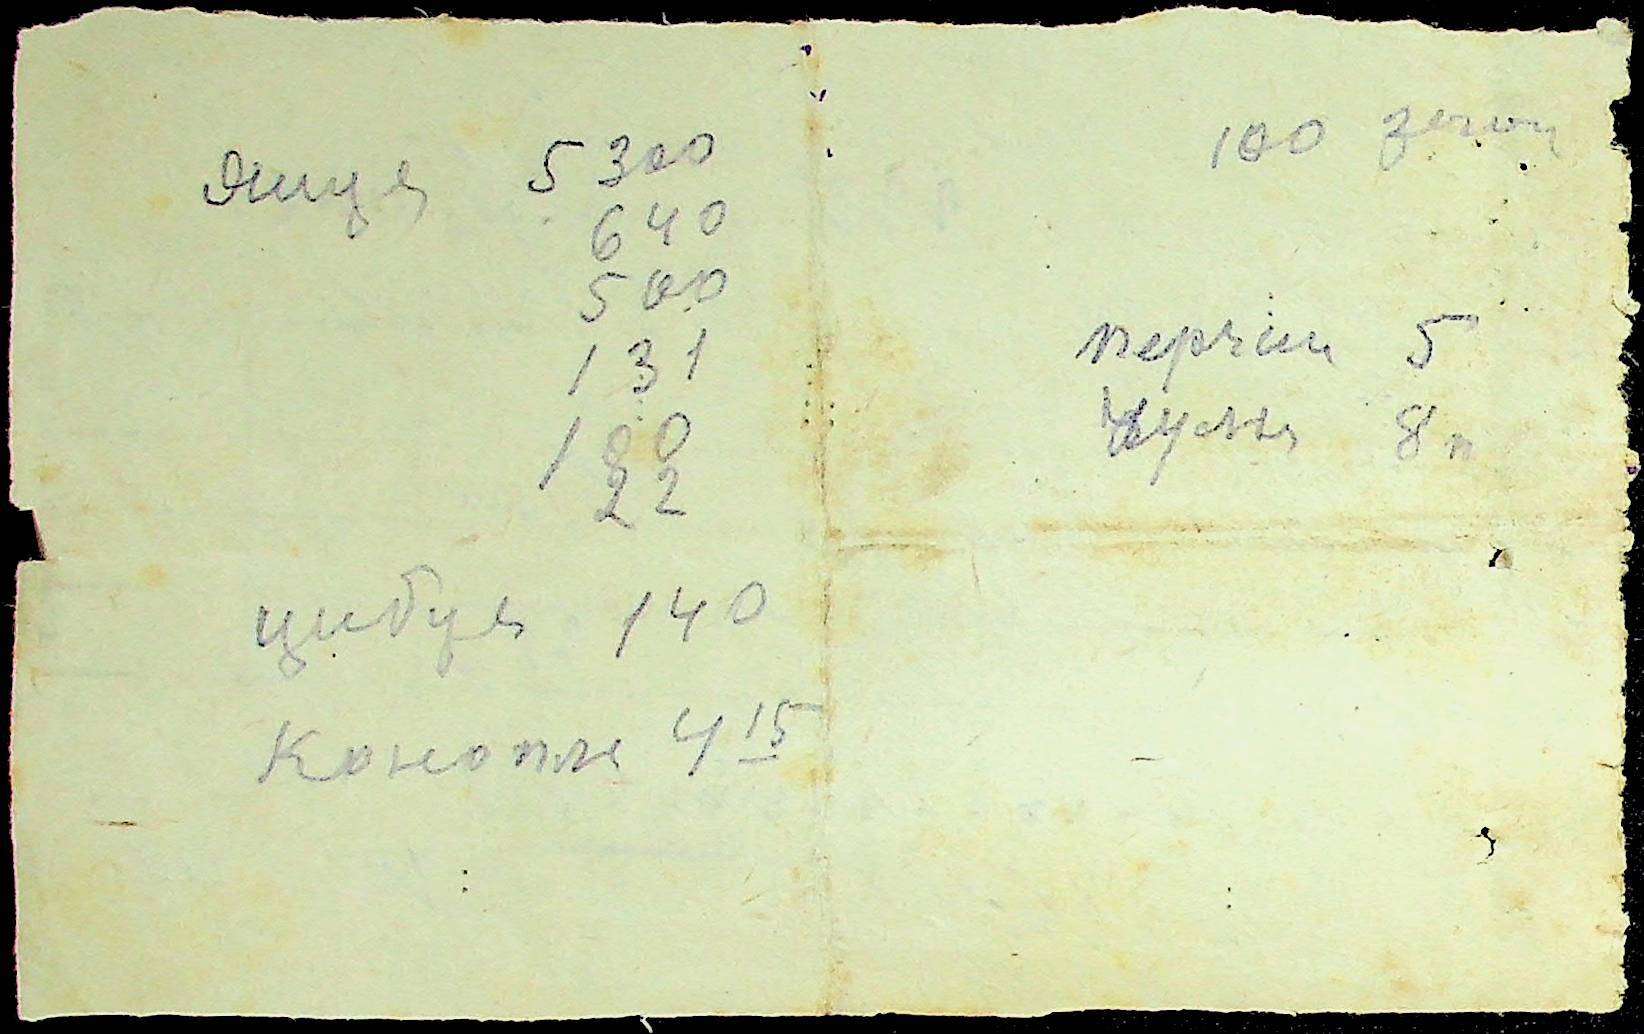 Яиця 5300
640
500
131
100
22
цибуя 140
Конопля 4 15
100
перчіш 5
8 п